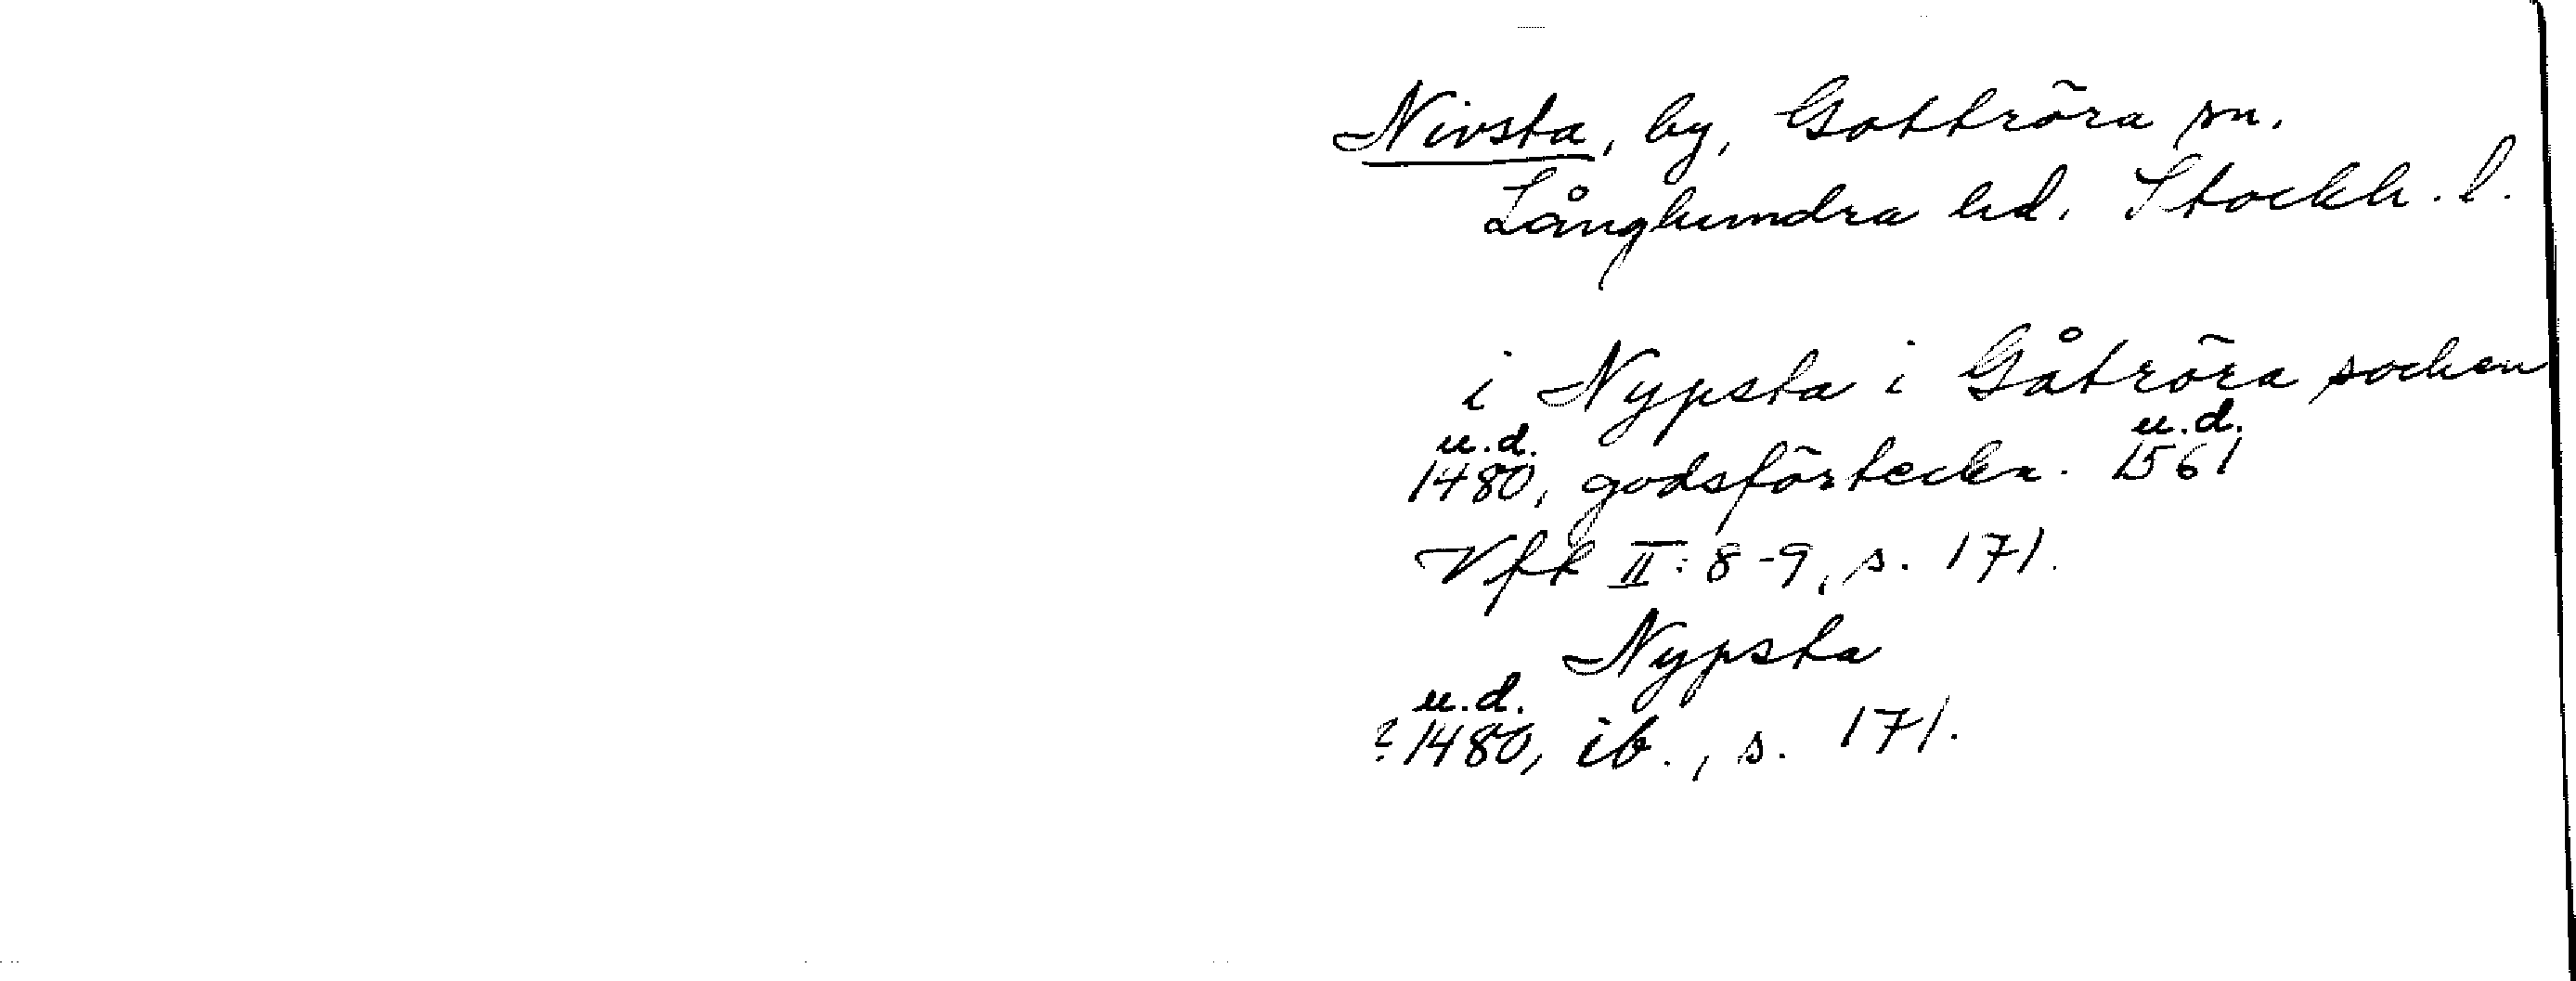 Nivsta, by, Gottröra sn.
Långhundra hd. Stockh. l.
i Nypsta i Gåtröra socken
u.d. u.d.
1480, godsförteckn. 1561
Vfk II: 8-9, s. 171.
Nypsta
u.d.
? 1480, ib., s. 171.